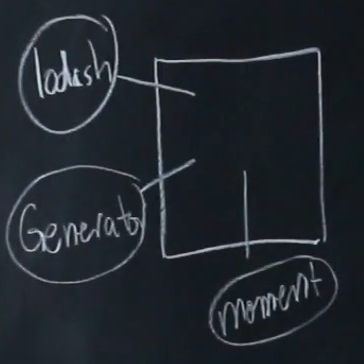 lodash
Generator
moment